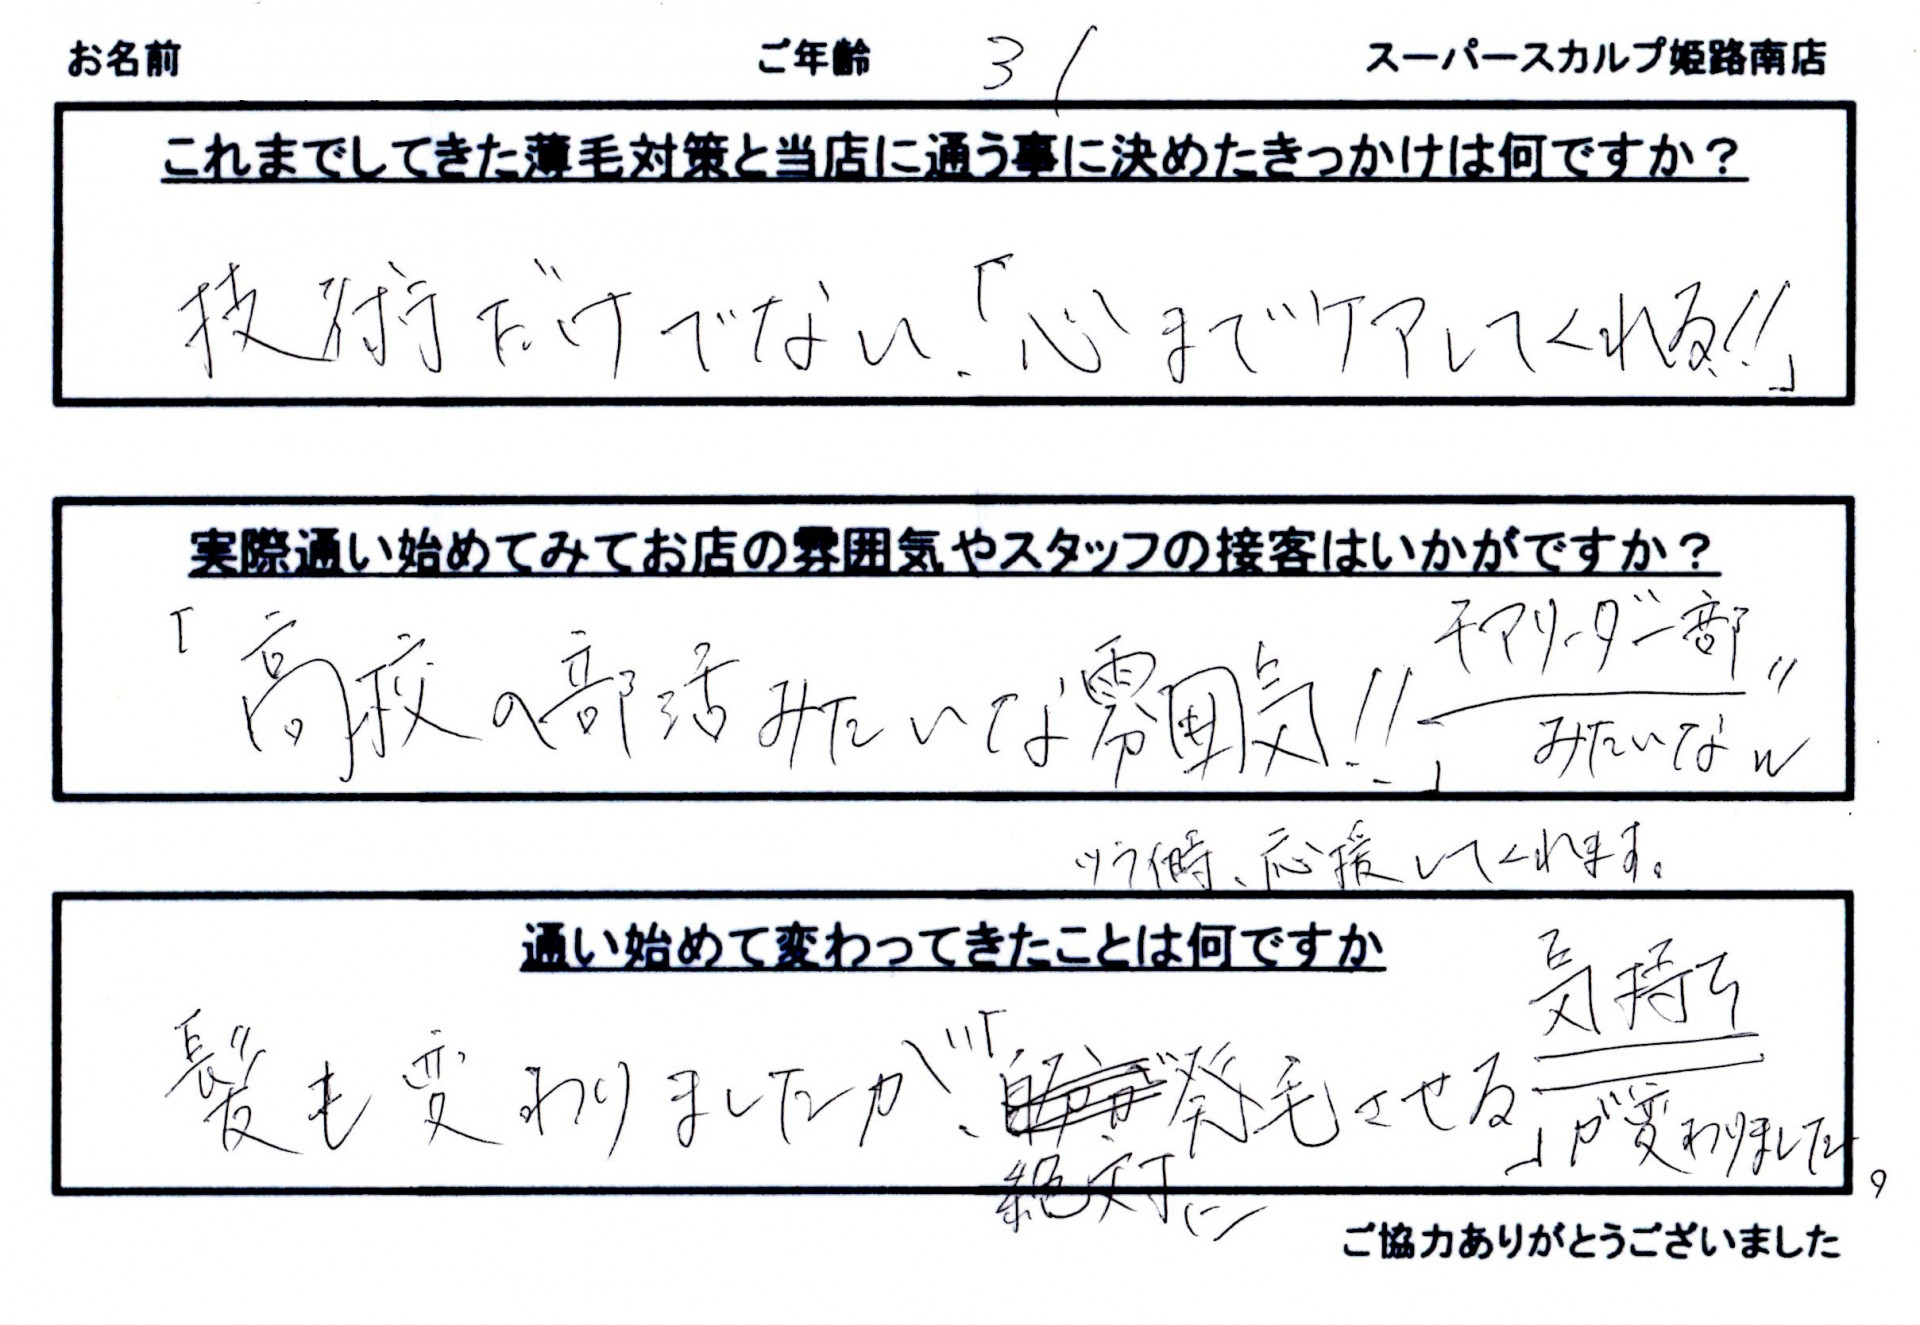 お名前 ご年齢 31 スーパースカルプ姫路南店
これまでしてきた薄毛対策と当店に通う事に決めたきっかけは何ですか？
技術だけでない、「心までケアしてくれる!!」
実際通い始めてみてお店の雰囲気やスタッフの接客はいかがですか？
「高校の部活みたいな雰囲気!!」
チアリーダー部
みたいな
ツライ時、応援してくれます。
通い始めて変わってきたことは何ですか
髪も変わりましたが、「
絶対に
発毛させる
気持ち
」が変わりました。
ご協力ありがとうございました